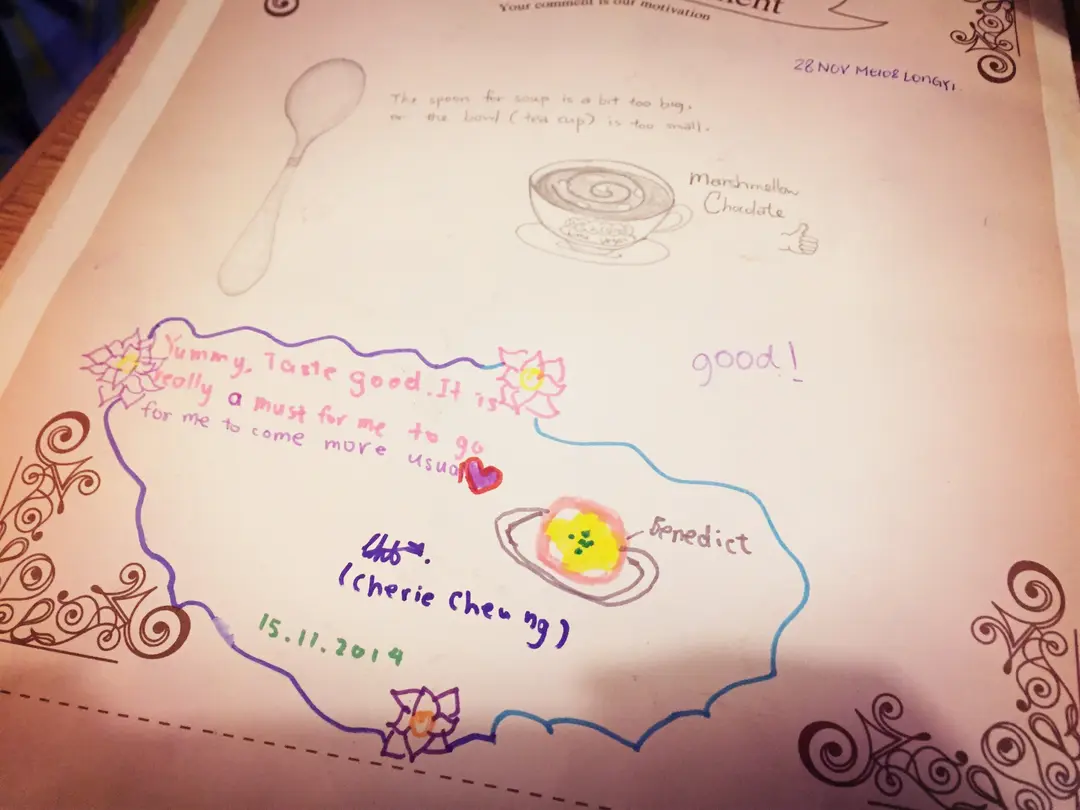 Your comment is our motivation
28 NOV
The spoon for soup is a bit too big.
or the bowl (tea cup) is too small.
Marshmellow
Chocolate
good!
Yummy. Taste good. It is
really a must for me to go
for me to come more usual
Benedict
(Cherie Cheung)
15.11.2014